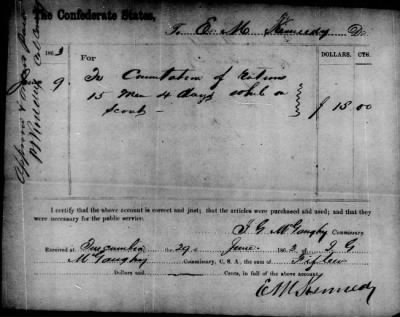 The Confederate States,
To E. M. Kennedy Dr.
1863
For
DOLLARS. CTS.
9. To Commutation of Rations
15 Men 4 days while on
Scout — $ 15 00
I certify that the above account is correct and just; that the articles were purchased and used; and that they
were necessary for the public service.
J. G. McGaughy
Commissary
Received at Tuscumbia the 29 of June 1863, of J G
McGaughy Commissary, C. S. A., the sum of Fifteen
Dollars and Cents, in full of the above account.
E M Kennedy